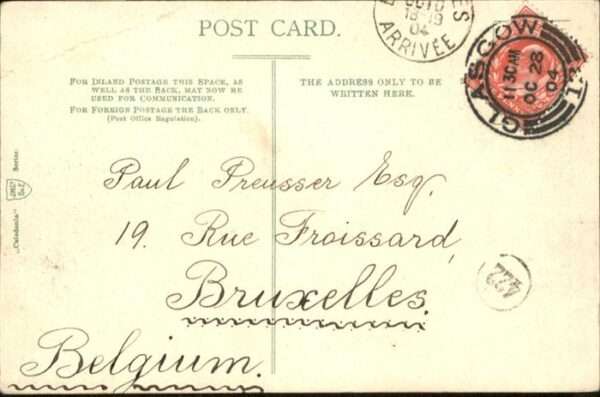 POST CARD.
FOR INLAND POSTAGE THIS SPACE, AS
WELL AS THE BACK, MAY NOW BE
USED FOR COMMUNICATION.
FOR FOREIGN POSTAGE THE BACK ONLY.
(Post Office Regulation).
THE ADDRESS ONLY TO BE
WRITTEN HERE.
18-19
04
ARRIVÉE
GLASGOW
11 30AM
OC 28
04
Paul Preusser Esq.
19. Rue Froissard,
Bruxelles.
Belgium.
422
"Caledonia" Series.